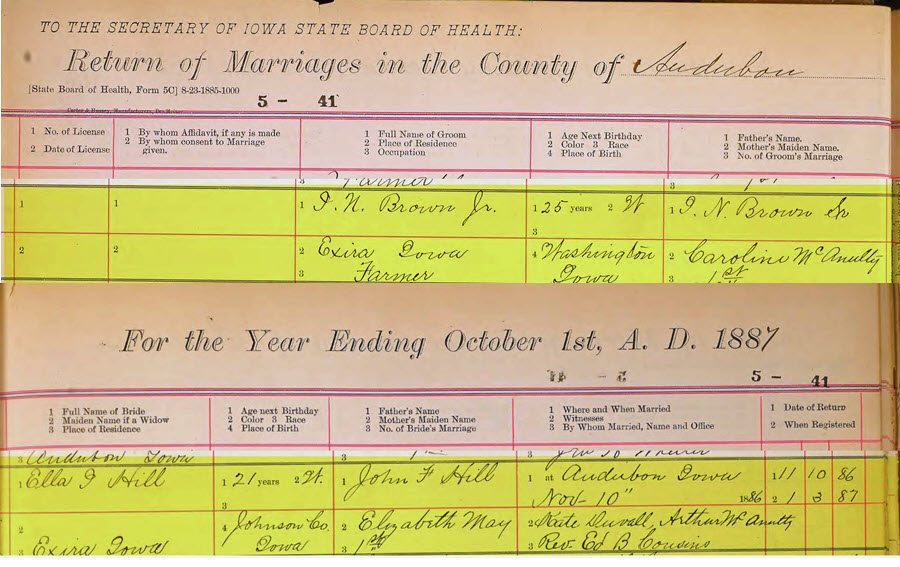 TO THE SECRETARY OF IOWA STATE BOARD OF HEALTH:
Return of Marriages in the County of Audubon
[State Board of Health, Form 5C] 8-23-1885-1000
5 - 41
1 No. of License
2 Date of License
1 By whom Affidavit, if any is made
2 By whom consent to Marriage given.
1 Full Name of Groom
2 Place of Residence
3 Occupation
1 Age Next Birthday
2 Color 3 Race
4 Place of Birth
1 Father's Name.
2 Mother's Maiden Name.
3 No. of Groom's Marriage
3 Farmer
3 1st
1
1
1 I. N. Brown Jr.
1 25 years 2 W
3
1 I. N. Brown Sr
2
2
2 Exira Iowa
3 Farmer
4 Washington
Iowa
2 Caroline McAnulty
3 1st
For the Year Ending October 1st, A. D. 1887
5 - 41
1 Full Name of Bride
2 Maiden Name if a Widow
3 Place of Residence
1 Age next Birthday
2 Color 3 Race
4 Place of Birth
1 Father's Name
2 Mother's Maiden Name
3 No. of Bride's Marriage
1 Where and When Married
2 Witnesses
3 By Whom Married, Name and Office
1 Date of Return
2 When Registered
3 Audubon Iowa
3
3
1 Ella I Hill
1 21 years 2 W.
3
1 John F Hill
1 at Audubon Iowa
Nov 10" 1886
1 11 10 86
2 1 3 87
2
3 Exira Iowa
4 Johnson Co.
Iowa
2 Elizabeth May
3 1st
2 Kate Duvall, Arthur McAnulty
3 Rev. Ed B Cousins